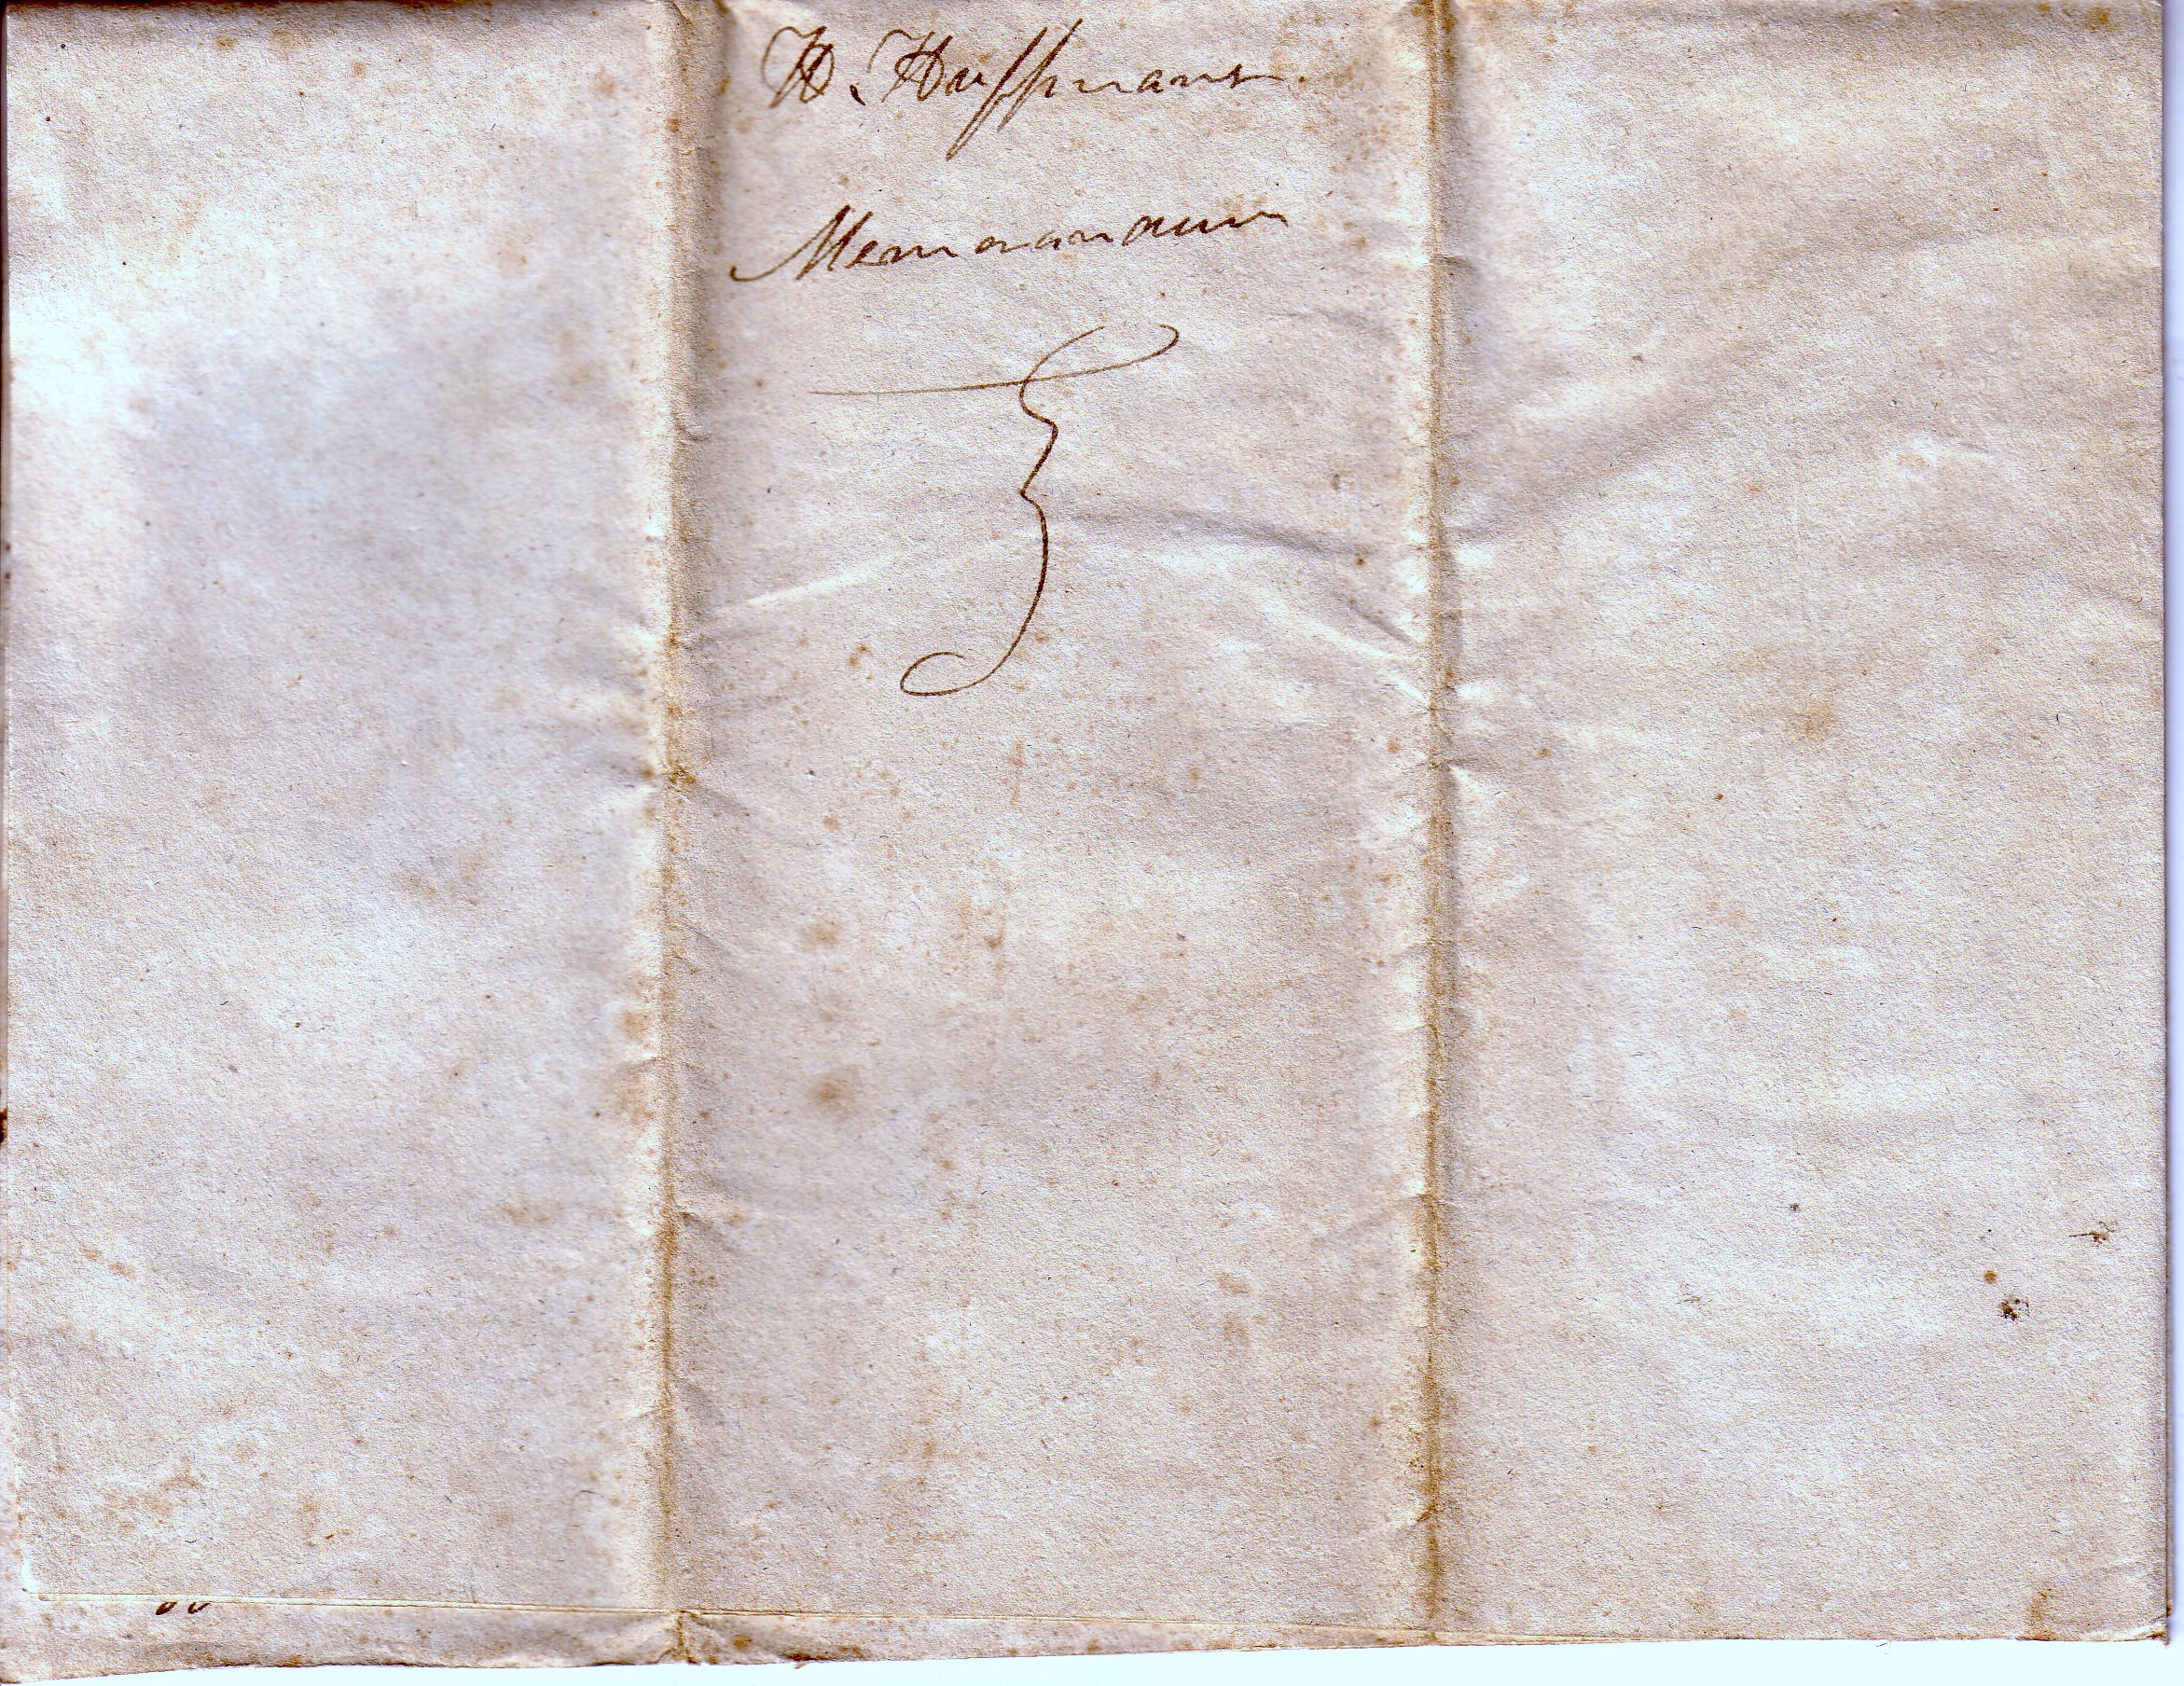 H. Huffmans.
Memorandum